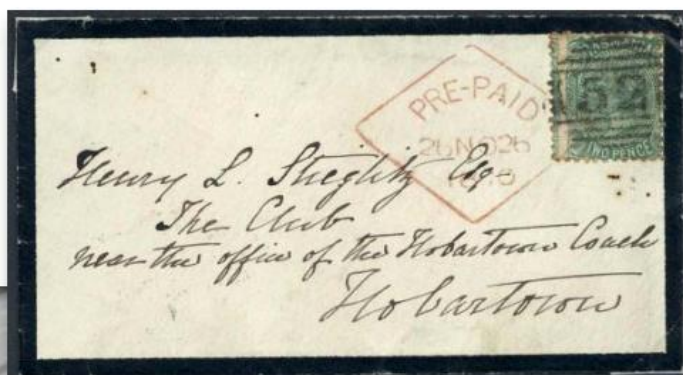 PRE-PAID
TASMANIA
52
TWO PENCE
Henry L. Stieglitz Esq
The Club
near the office of the Hobartown Coach
Hobartown